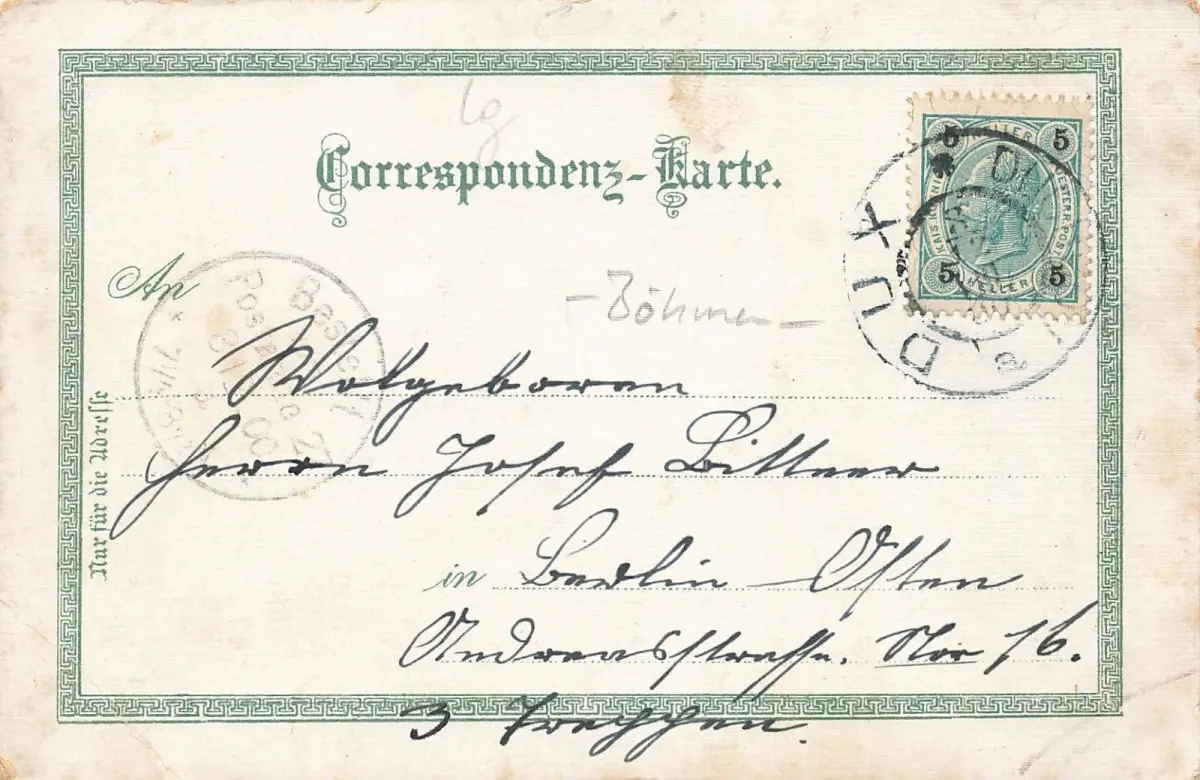 Correspondenz-Karte.
5 HELLER 5
5 HELLER 5
DUX
Böhmen
An
Bestellt
Postamte
Wolgeboren
Herrn Josef Bittner
in Berlin Osten
Andreasstrasse. Nro 16.
3 Treppen.
Nur für die Adresse